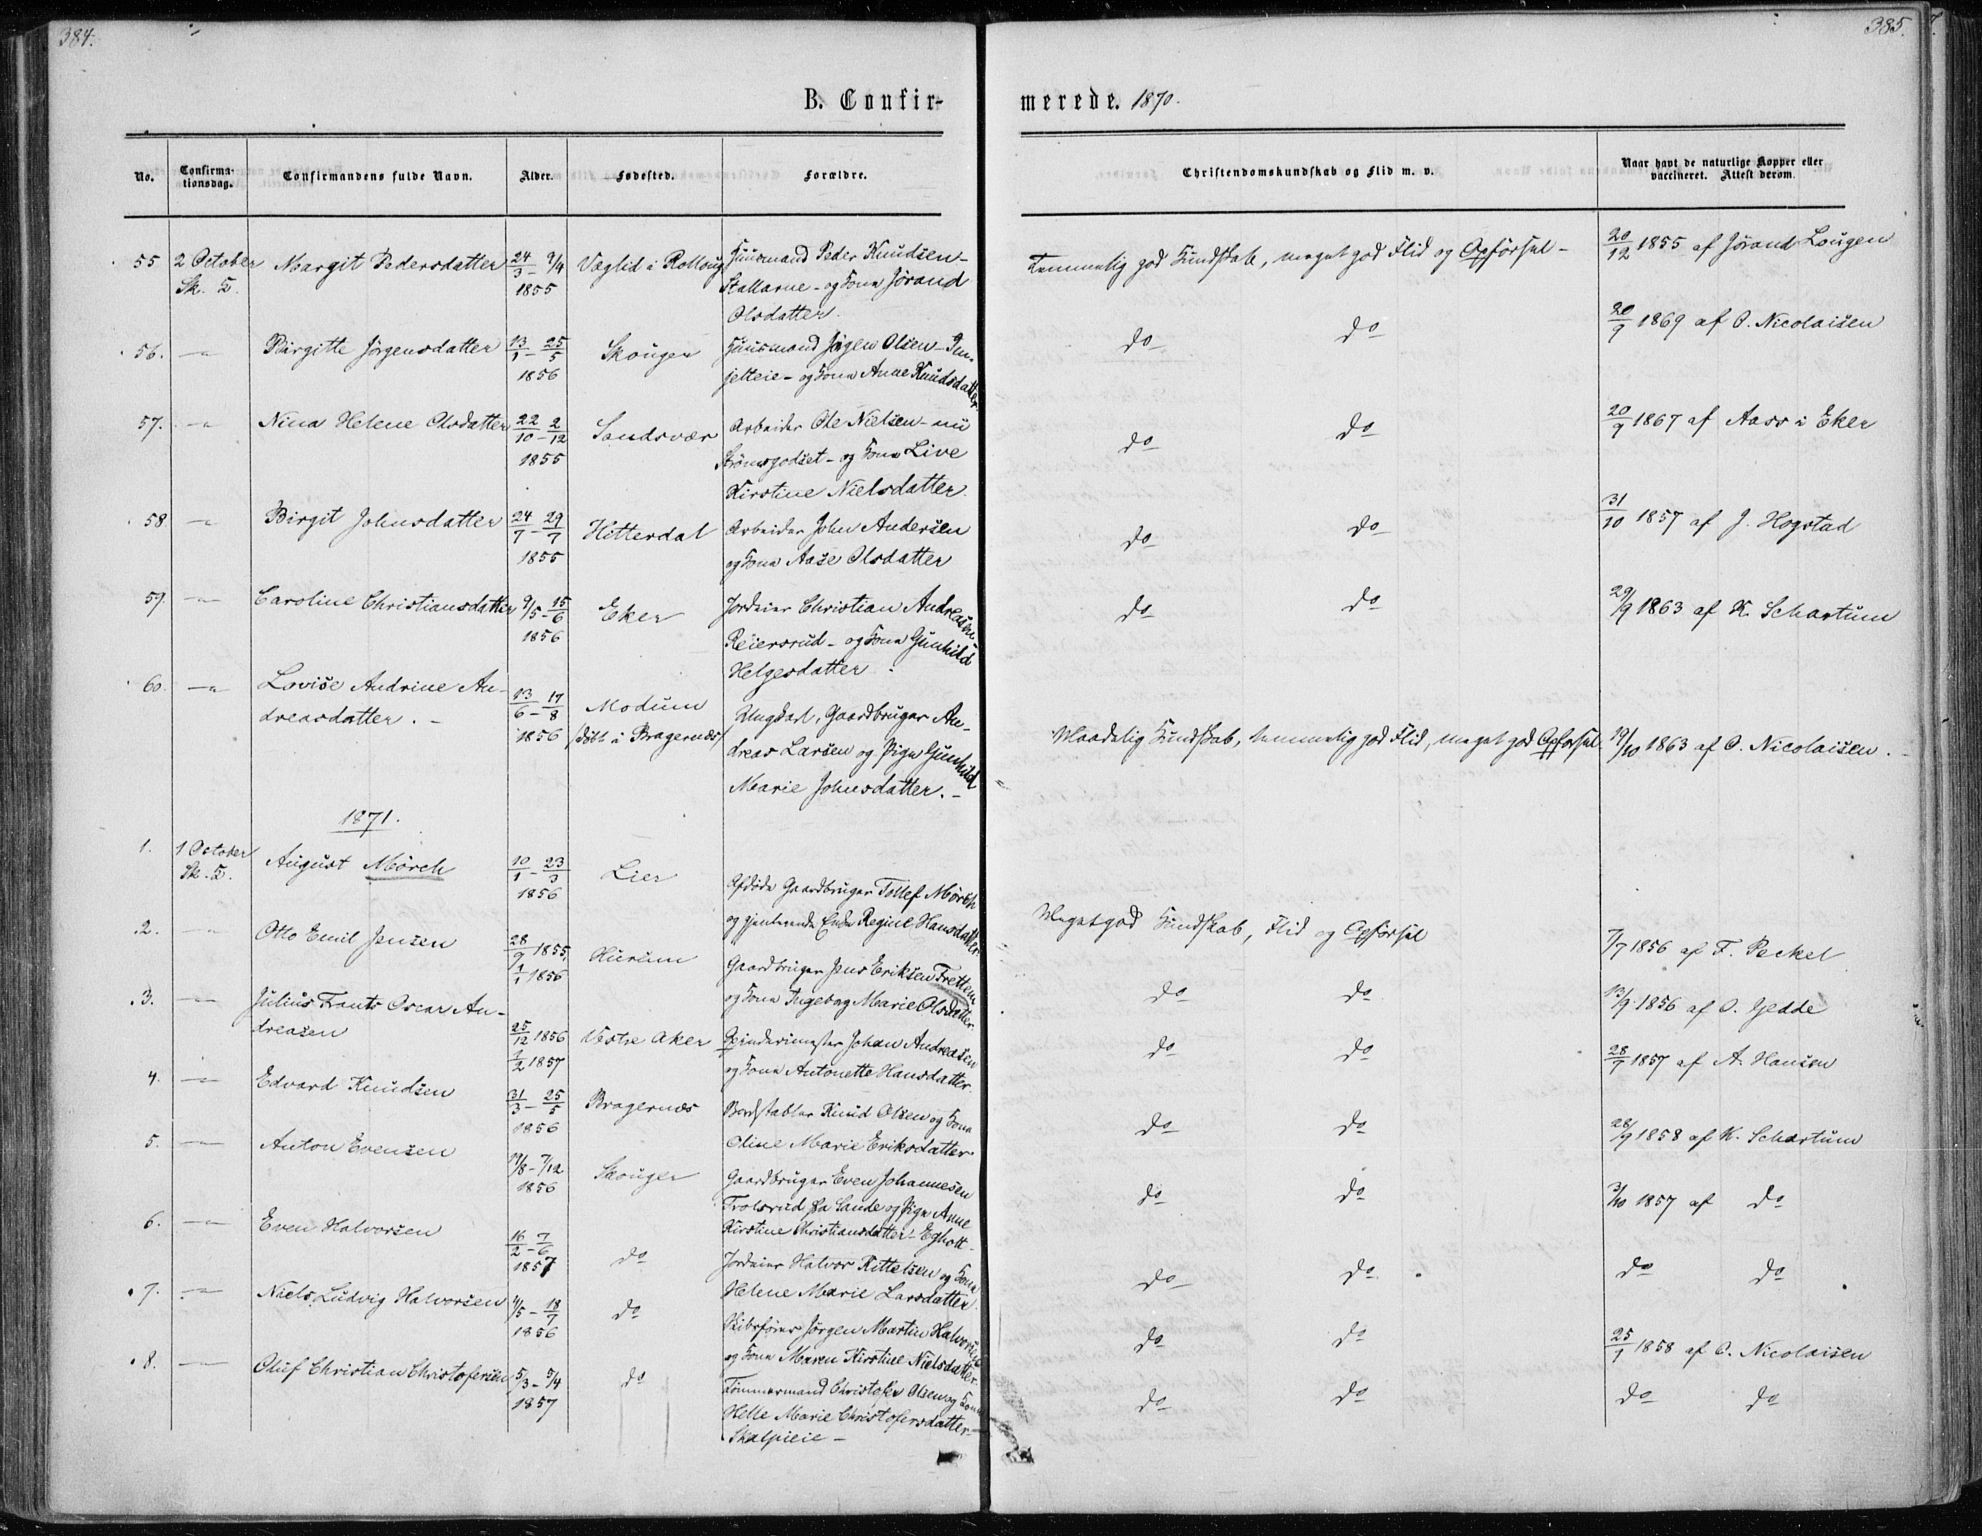 384.
385.
B. Confir-
merede. 1870.
No.
Confirma-
tionsdag.
Confirmandens fulde Navn.
Alder.
Fødested.
Forældre.
Christendomskundskab og Flid m. v.
Naar havt de naturlige Kopper eller
vaccineret. Attest derom.
55 2 October Margit Pedersdatter 24/3 - 9/4 Væglid i Rolloug Huusmand Peder Knudsen- Temmelig god Kundskab, meget god Flid og Opførsel - 20/12 1855 af Jørand Lougen
Sk. K. 1855 Stallarne - og Kona Jørand
Olsdatter.
56. -"- Birgitte Jørgensdatter 13/1 - 25/5 Skouger Huusmand Jørgen Olsen do do 20/9 1869 af O. Nicolaisen
1856 jetteie - og Kona Anne Knudsdatter
57. -"- Nina Helene Olsdatter 22/10 - 2/12 Sandsvær Arbeider Ole Nielsen - nu do do 20/9 1867 af Aass i Eker
1855 Strømsgodset - og Kona Live
Kirstine Nielsdatter.
58 -"- Birgit Johnsdatter 24/7 - 29/7 Hitterdal Arbeider John Andersen do do 31/10 1857 af J. Hogstad
1855 og Kona Aase Olsdatter
59. -"- Caroline Christiansdatter 9/5 - 15/6 Eker Jordeier Christian Andreasen do do 29/9 1863 af K. Schartum
1856 Reiersrud - og Kona Gunhild
Helgesdatter.
60. -"- Lovise Andrine An- 13/6 - 17/8 Modum Ungkarl, Gaardbruger An-
dreasdatter. - 1856 /døbt i Bragernæs/ dreas Larsen og Pige Gunhild Maadelig Kundskab, temmelig god Flid, meget god Opførsel. 19/10 1863 af O. Nicolaisen.
Marie Johnsdatter. -
1871.
1. 1 October August Mørch 10/1 - 23/3 Lier Afdøde Gaardbruger Tollef Mørch Meget god Kundskab, Flid og Opførsel 7/7 1856 af F. Peckel
Sk. K. 1856 og gjenlevende Enke Regine Hansdatter
2. -"- Otto Emil Jensen 28/9 1855, Hurum Gaardbruger Jens Eriksen Frettem do do 13/9 1856 af O. Gedde
1/1 1856 og Kona Ingebog Marie Olsdatter
3. -"- Julius Frants Oscar An- 25/12 1856 Vestre Aker Johan Andreasen do do 28/7 1857 af A. Hansen
dreasen 1/2 1857 og Kona Antonette Hansdatter
4. -"- Edvard Knudsen 31/3 - 25/5 Bragernæs Bordstabler Knud Olsen og Kona do do 28/9 1858 af K. Schartum
1856 Oline Marie Eriksdatter
5. -"- Anton Evensen 19/8 - 7/12 Skouger Gaardbruger Even Johannesen do do 3/10 1857 af do
1856 Trolsrud fra Sande og Pige Anne
Kirstine Christiansdatter - Egholt
6. -"- Even Halvorsen 16/2 - 7/6 do Jordeier Halvor Kittelsen og Kona do do do do
1857 Helene Marie Larsdatter
7. -"- Niels Ludvig Halvorsen 4/5 - 18/7 do Skibsfører Jørgen Martin Halvorsen do do 25/1 1858 af O. Nicolaisen
1856 og Kona Maren Kirstine Nielsdatter
8. -"- Oluf Christian Christofersen 5/3 - 5/4 do Tømmermand Christofer Olsen og Kona do do do do
1857 Helle Marie Christofersdatter
Skalpieie -